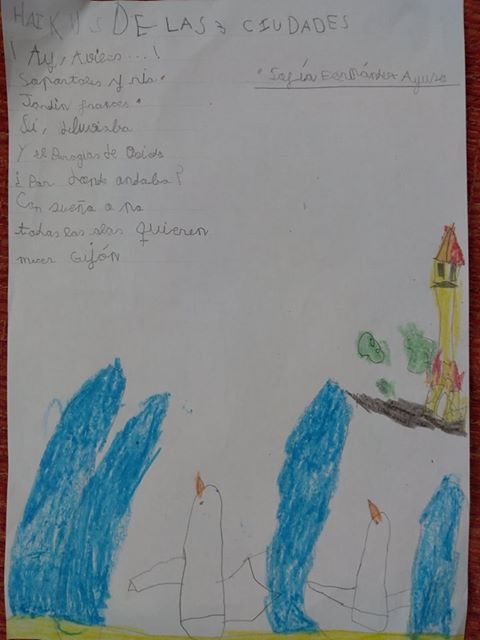 HAIKUS DE LAS 3 CIUDADES
¡Ay, Aviles...!
Soportales y ría.
Jardín frances.
Sí, diluviaba
Y el Paraguas de Oviedo
¿Por donde andaba?
Con sueño o no
todas las olas quieren
mecer Gijón
Sofía Fernández Ayuso